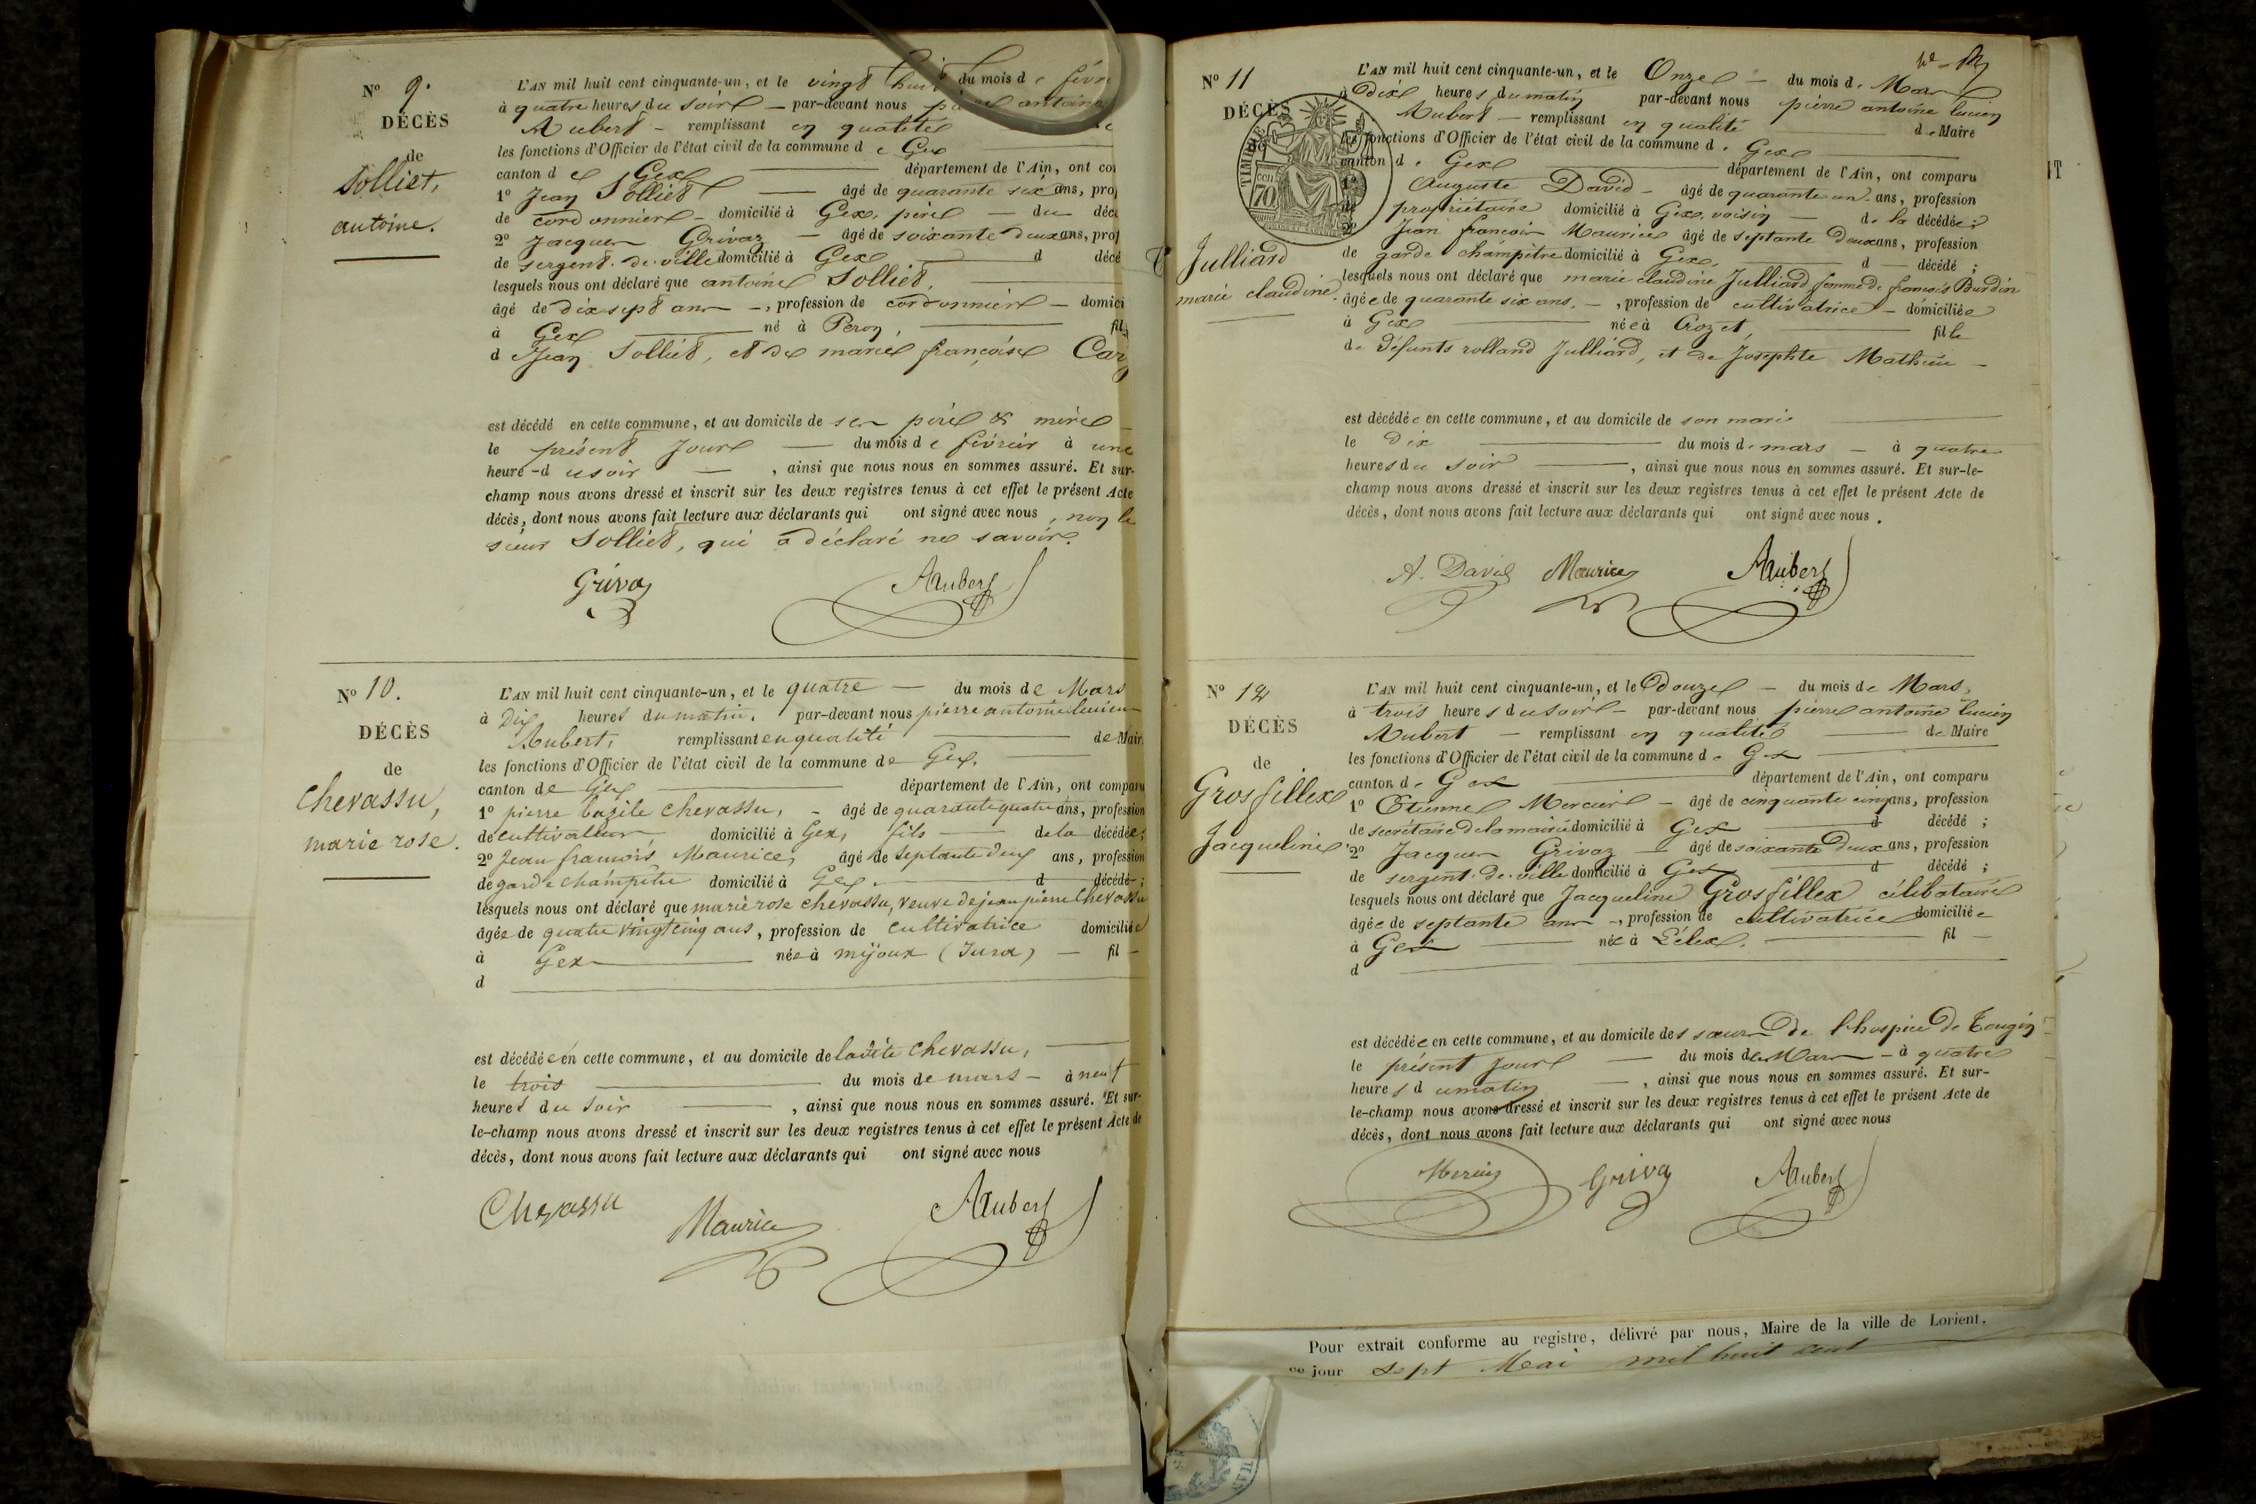 Nº 9.
DÉCÈS
de
Solliet,
antoine.
L'AN mil huit cent cinquante-un, et le vingt huit du mois de févr
à quatre heures du soir — par-devant nous pierre antoine
Aubert — remplissant en qualité
les fonctions d'Officier de l'état civil de la commune de Gex
canton de Gex département de l'Ain, ont co
1º Jean Solliet — âgé de quarante six ans, pro
de cordonnier — domicilié à Gex, père — du déc
2º Jacques Grivaz — âgé de soixante deux ans, prof
de sergent de ville domicilié à Gex d décé
lesquels nous ont déclaré que antoine Solliet,
âgé de dix sept ans —, profession de cordonnier — domici
à Gex né à Peron, fil
d Jean Solliet, et de marie françoise
est décédé en cette commune, et au domicile de ses père & mère
le présent jour — du mois de février à une
heure du soir —, ainsi que nous nous en sommes assuré. Et sur-
champ nous avons dressé et inscrit sur les deux registres tenus à cet effet le présent Acte
décès, dont nous avons fait lecture aux déclarants qui ont signé avec nous, non le
sieur Solliet, qui a déclaré ne savoir.
Grivaz AAubert
Nº 10.
DÉCÈS
de
Chevassu,
marie rose.
L'AN mil huit cent cinquante-un, et le quatre — du mois de Mars
à Dix heures du matin, par-devant nous pierre antoine lucien
Aubert, remplissant en qualité de Mair
les fonctions d'Officier de l'état civil de la commune de Gex,
canton de Gex département de l'Ain, ont comparu
1º pierre bazile chevassu, — âgé de quarante quatre ans, profession
de cultivateur domicilié à Gex, fils — de la décédée;
2º Jean françois Maurice, âgé de septante deux ans, profession
de garde champêtre domicilié à Gex — d décédé;
lesquels nous ont déclaré que marie rose chevassu, veuve de jean pierre Chevassu
âgée de quatre vingt cinq ans, profession de cultivatrice domiciliée
à Gex née à mijoux (Jura) — fil —
d
est décédée en cette commune, et au domicile de la dite chevassu,
le trois du mois de mars — à neuf
heures du soir —, ainsi que nous nous en sommes assuré. Et sur-
le-champ nous avons dressé et inscrit sur les deux registres tenus à cet effet le présent Acte de
décès, dont nous avons fait lecture aux déclarants qui ont signé avec nous
Chevassu Maurice AAubert
Nº 11
DÉCÈS
TIMBRE
70
Julliard
marie claudine.
L'AN mil huit cent cinquante-un, et le Onze — du mois de Mars
à Dix heures du matin par-devant nous pierre antoine lucien
Aubert — remplissant en qualité de Maire
les fonctions d'Officier de l'état civil de la commune de Gex
canton de Gex département de l'Ain, ont comparu
Auguste David — âgé de quarante un ans, profession
propriétaire domicilié à Gex, voisin — de la décédée;
2º Jean françois Maurice âgé de septante Deux ans, profession
de garde champêtre domicilié à Gex, d — décédé;
lesquels nous ont déclaré que marie claudine Julliard femme de françois Burdin
âgée de quarante six ans, —, profession de cultivatrice — domiciliée
à Gex née à Crozet, fille
de Défunts rolland Julliard, et de Josephte Mathieu —
est décédée en cette commune, et au domicile de son mari
le Dix du mois de mars — à quatre
heures du soir —, ainsi que nous nous en sommes assuré. Et sur-le-
champ nous avons dressé et inscrit sur les deux registres tenus à cet effet le présent Acte de
décès, dont nous avons fait lecture aux déclarants qui ont signé avec nous.
A. David Maurice AAubert
Nº 12
DÉCÈS
de
Grosfillex
Jacqueline
L'AN mil huit cent cinquante-un, et le Douze — du mois de Mars,
à trois heures du soir — par-devant nous pierre antoine lucien
Aubert — remplissant en qualité de Maire
les fonctions d'Officier de l'état civil de la commune de Gex
canton de Gex département de l'Ain, ont comparu
1º Etienne Mercier — âgé de cinquante cinq ans, profession
de secrétaire de la mairie domicilié à Gex d décédé;
2º Jacques Grivaz — âgé de soixante Deux ans, profession
de sergent de ville domicilié à Gex d décédé;
lesquels nous ont déclaré que Jacqueline Grosfillex célibataire
âgée de septante ans —, profession de cultivatrice domiciliée
à Gex née à Lélex. fil —
d
est décédée en cette commune, et au domicile des sœurs De l'hospice De Tougin
le présent jour — du mois de Mars — à quatre
heures du matin —, ainsi que nous nous en sommes assuré. Et sur-
le-champ nous avons dressé et inscrit sur les deux registres tenus à cet effet le présent Acte de
décès, dont nous avons fait lecture aux déclarants qui ont signé avec nous
Mercier Grivaz AAubert
Pour extrait conforme au registre, délivré par nous, Maire de la ville de Lorient,
ce jour sept Mai mil huit cent